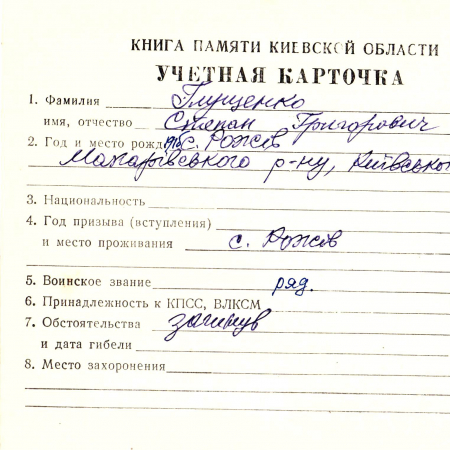 КНИГА ПАМЯТИ КИЕВСКОЙ ОБЛАСТИ
УЧЕТНАЯ КАРТОЧКА
1. Фамилия Глущенко
имя, отчество Степан Григорович
2. Год и место рожд с. Рожів
Макарівського р-ну, Київсько
3. Национальность
4. Год призыва (вступления)
и место проживания с. Рожів
5. Воинское звание ряд.
6. Принадлежность к КПСС, ВЛКСМ
7. Обстоятельства загинув
и дата гибели
8. Место захоронения